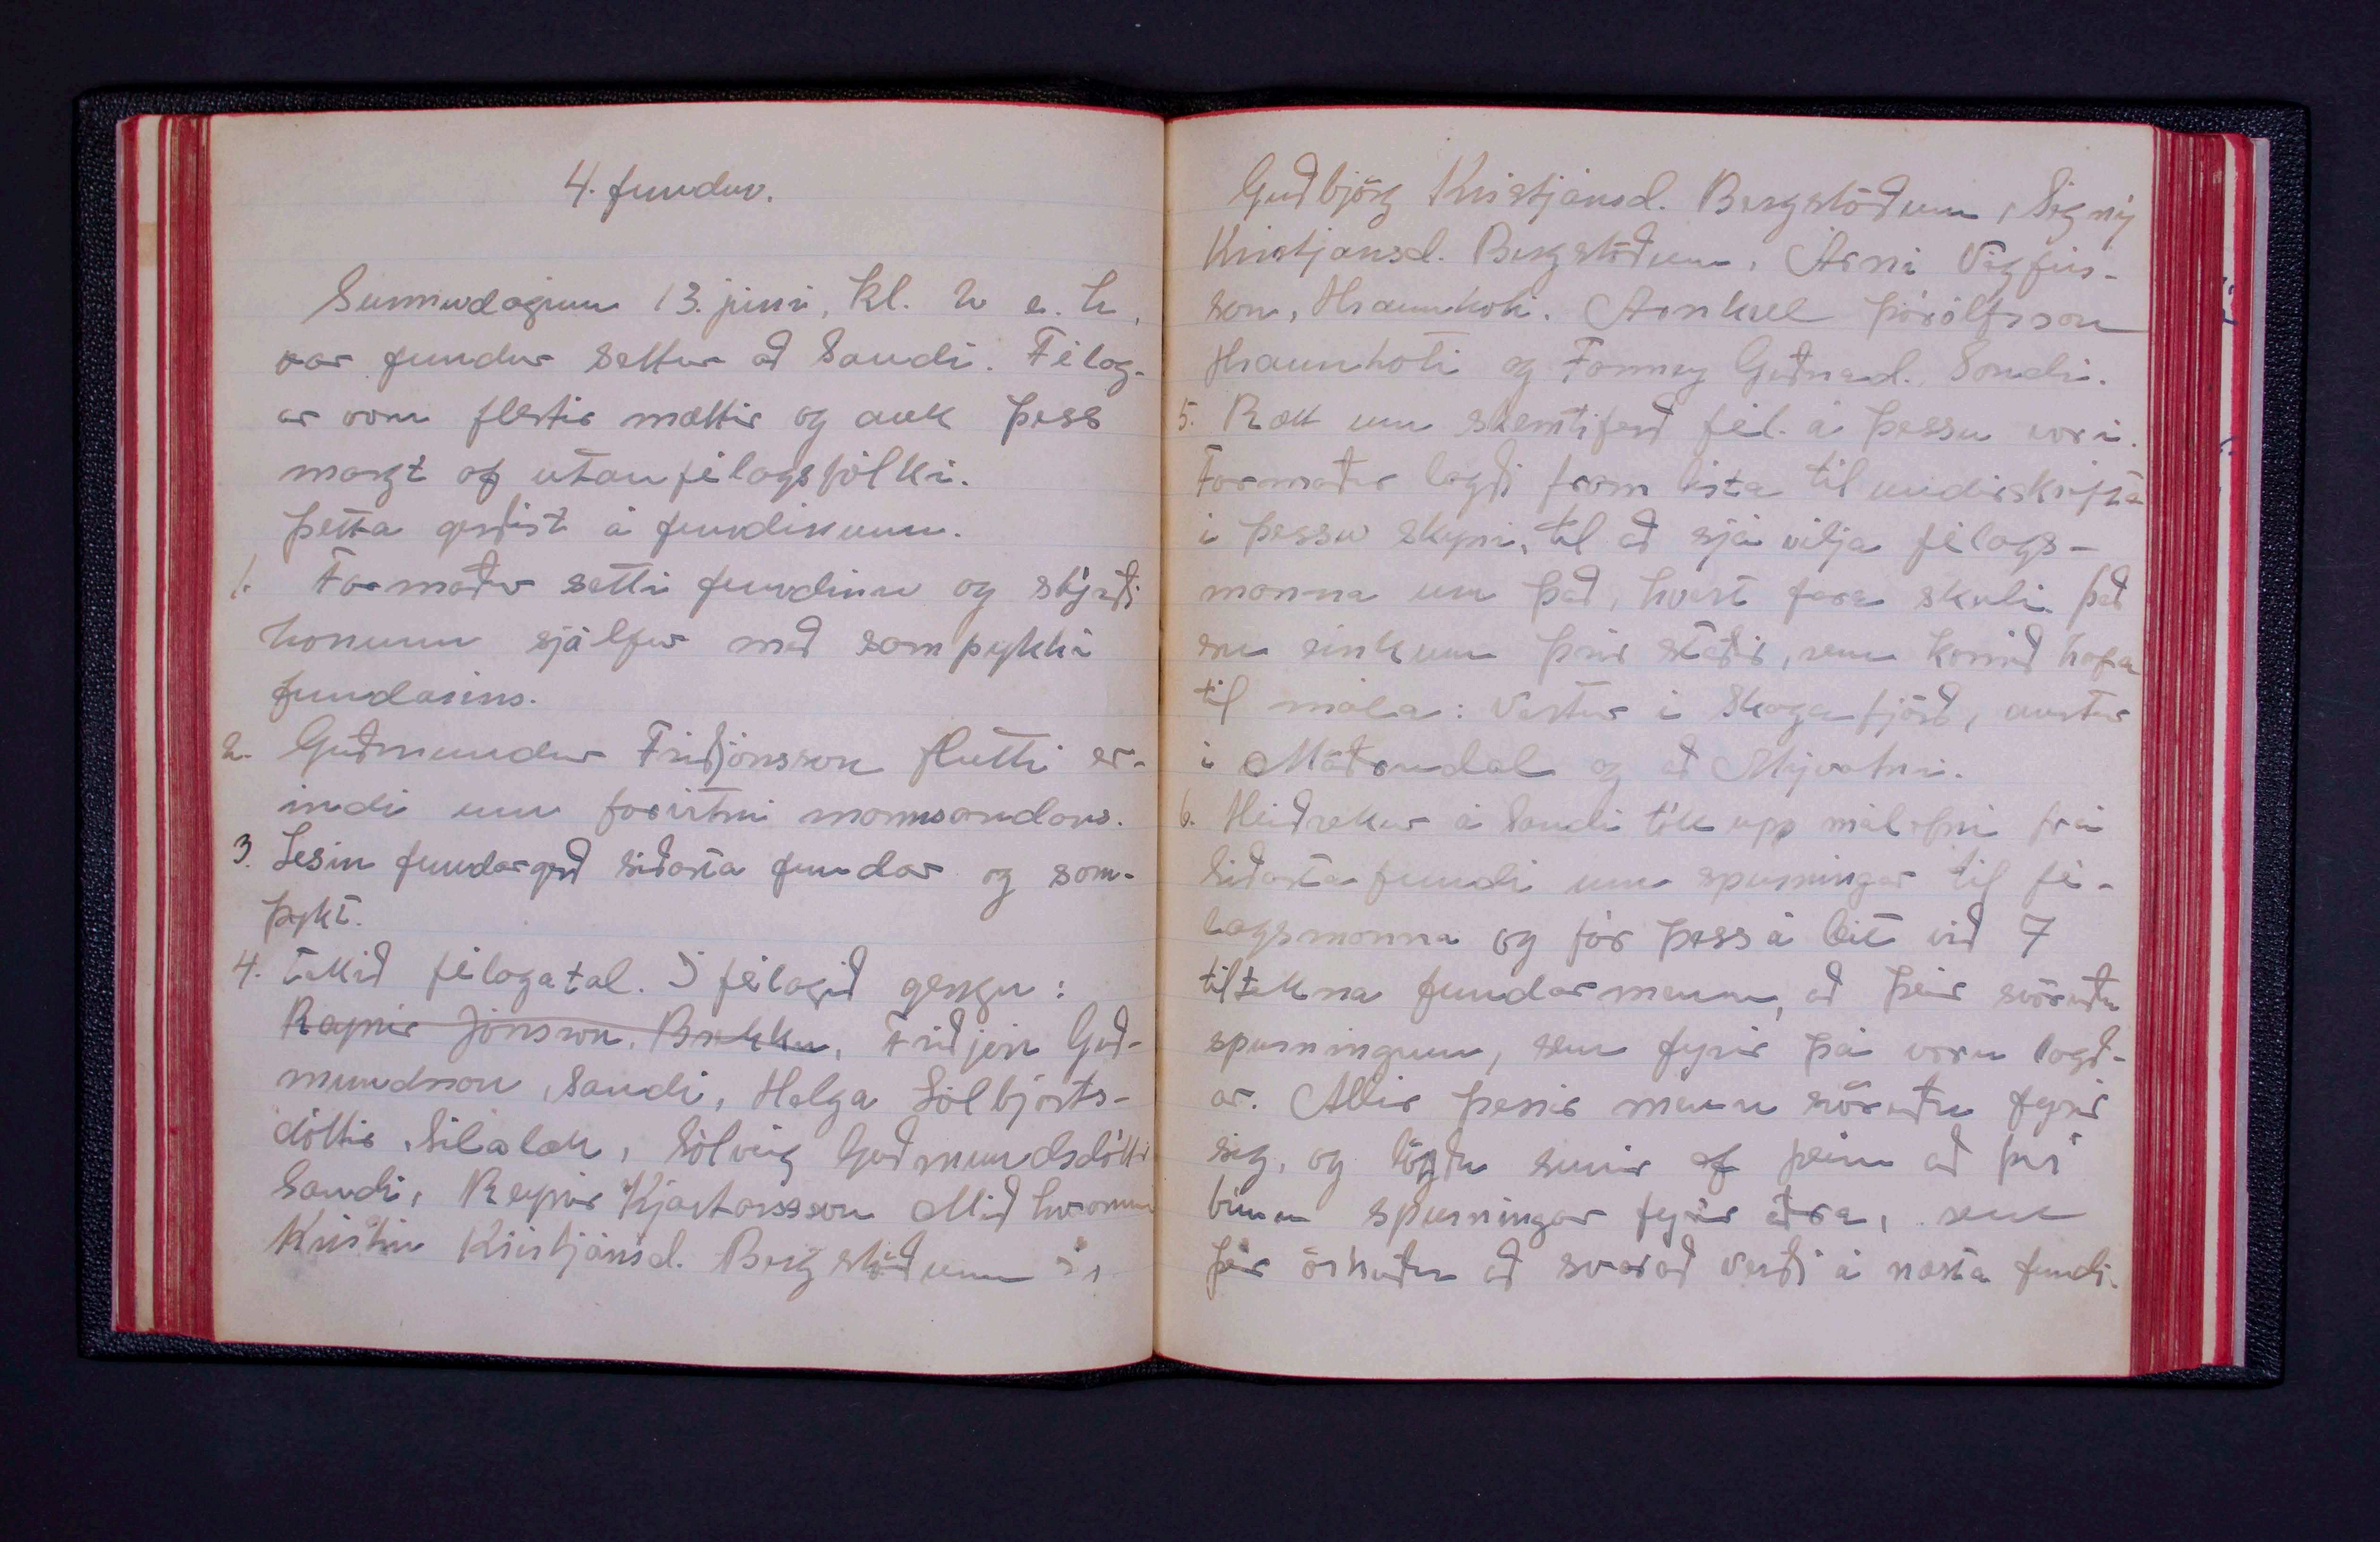 4. fundur.
Sunnudaginn 13. júni, kl. 2 e. h.
var fundur settur að Sandi. Félag-
ar voru flestir mættir og auk þess
margt af utanfélagsfólki.
Þetta gerðist á fundinum.
1. Formaður setti fundinn og stýrði
honum sjálfur með samþykki
fundarins.
2. Guðmundur Friðjónsson flutti er-
indi um forvitni mannsandans.
3. Lesin fundargerð síðasta fundar og sam-
þykt.
4. Tekið félagatal. Í félagið gengu:
Reynir Jónsson, Brekku, Friðjón Guð-
mundsson, Sandi, Helga Sólbjarts-
dóttir, Sílalæk, Sólveig Guðmundsdóttir
Sandi, Reynir Kjartansson Miðhvammi
Kristín Kristjánsd. Bergstöðum
Guðbjörg Kristjánsd. Bergstöðum, Signý
Kristjánsd. Bergstöðum, Árni Vigfús-
son, Hraunkoti. Arnkell Þórólfsson
Hraunkoti og Fanney Guðnad. Sandi.
5. Rætt um skemtiferð fél. á þessu vori.
Formaður lagði fram lista til undirskrifta
í þessu skyni, til að sjá vilja félags-
manna um það, hvert fara skuli. Það
eru einkum þrír staðir, sem komið hafa
til mála: Vestur í Skagafjörð, austur
í Möðrudal og að Mývatni.
6. Heiðrekur á Sandi tók upp málefni frá
síðasta fundi um spurningar til fé-
lagsmanna og fór þess á leit við 7
tiltekna fundarmenn, að þeir svöruðu
spurningum, sem fyrir þá voru lagð-
ar. Allir þessir menn svöruðu fyrir
sig, og lögðu sumir af þeim að því
búnu spurningar fyrir aðra, sem
þeir óskuðu að svarað verði á næsta fundi.